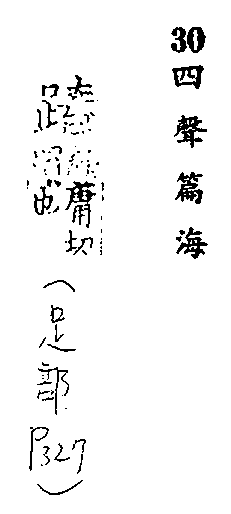 30四聲篇海
庸切
(足部P327)